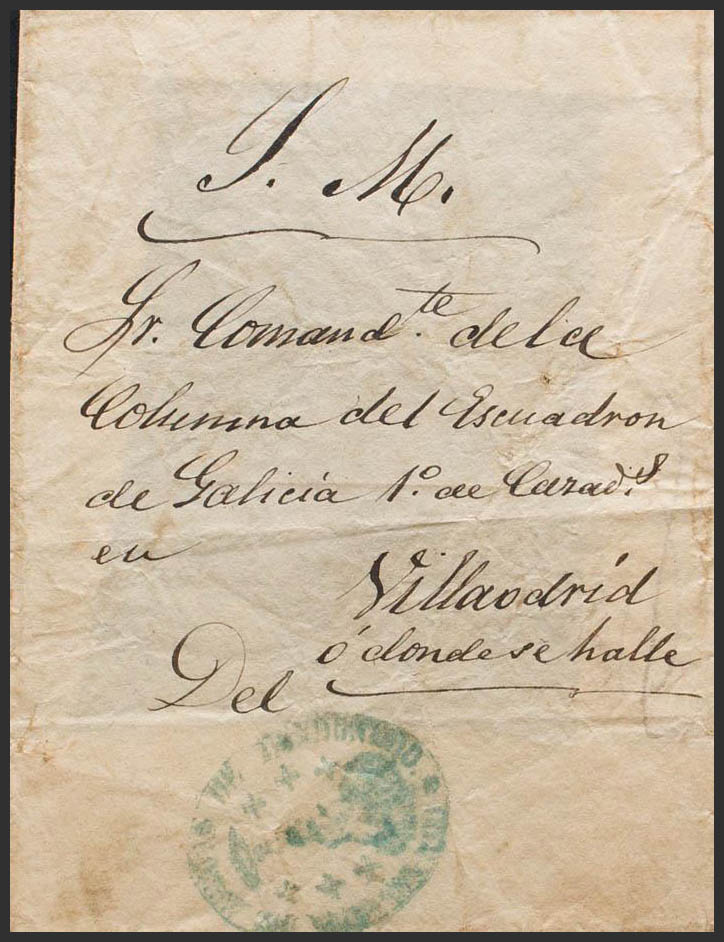 S. M.
Sr. Comand.te de la
Columna del Escuadron
de Galicia 1º. de Cazad.s
en
Villaodrid
ó donde se halle
Del